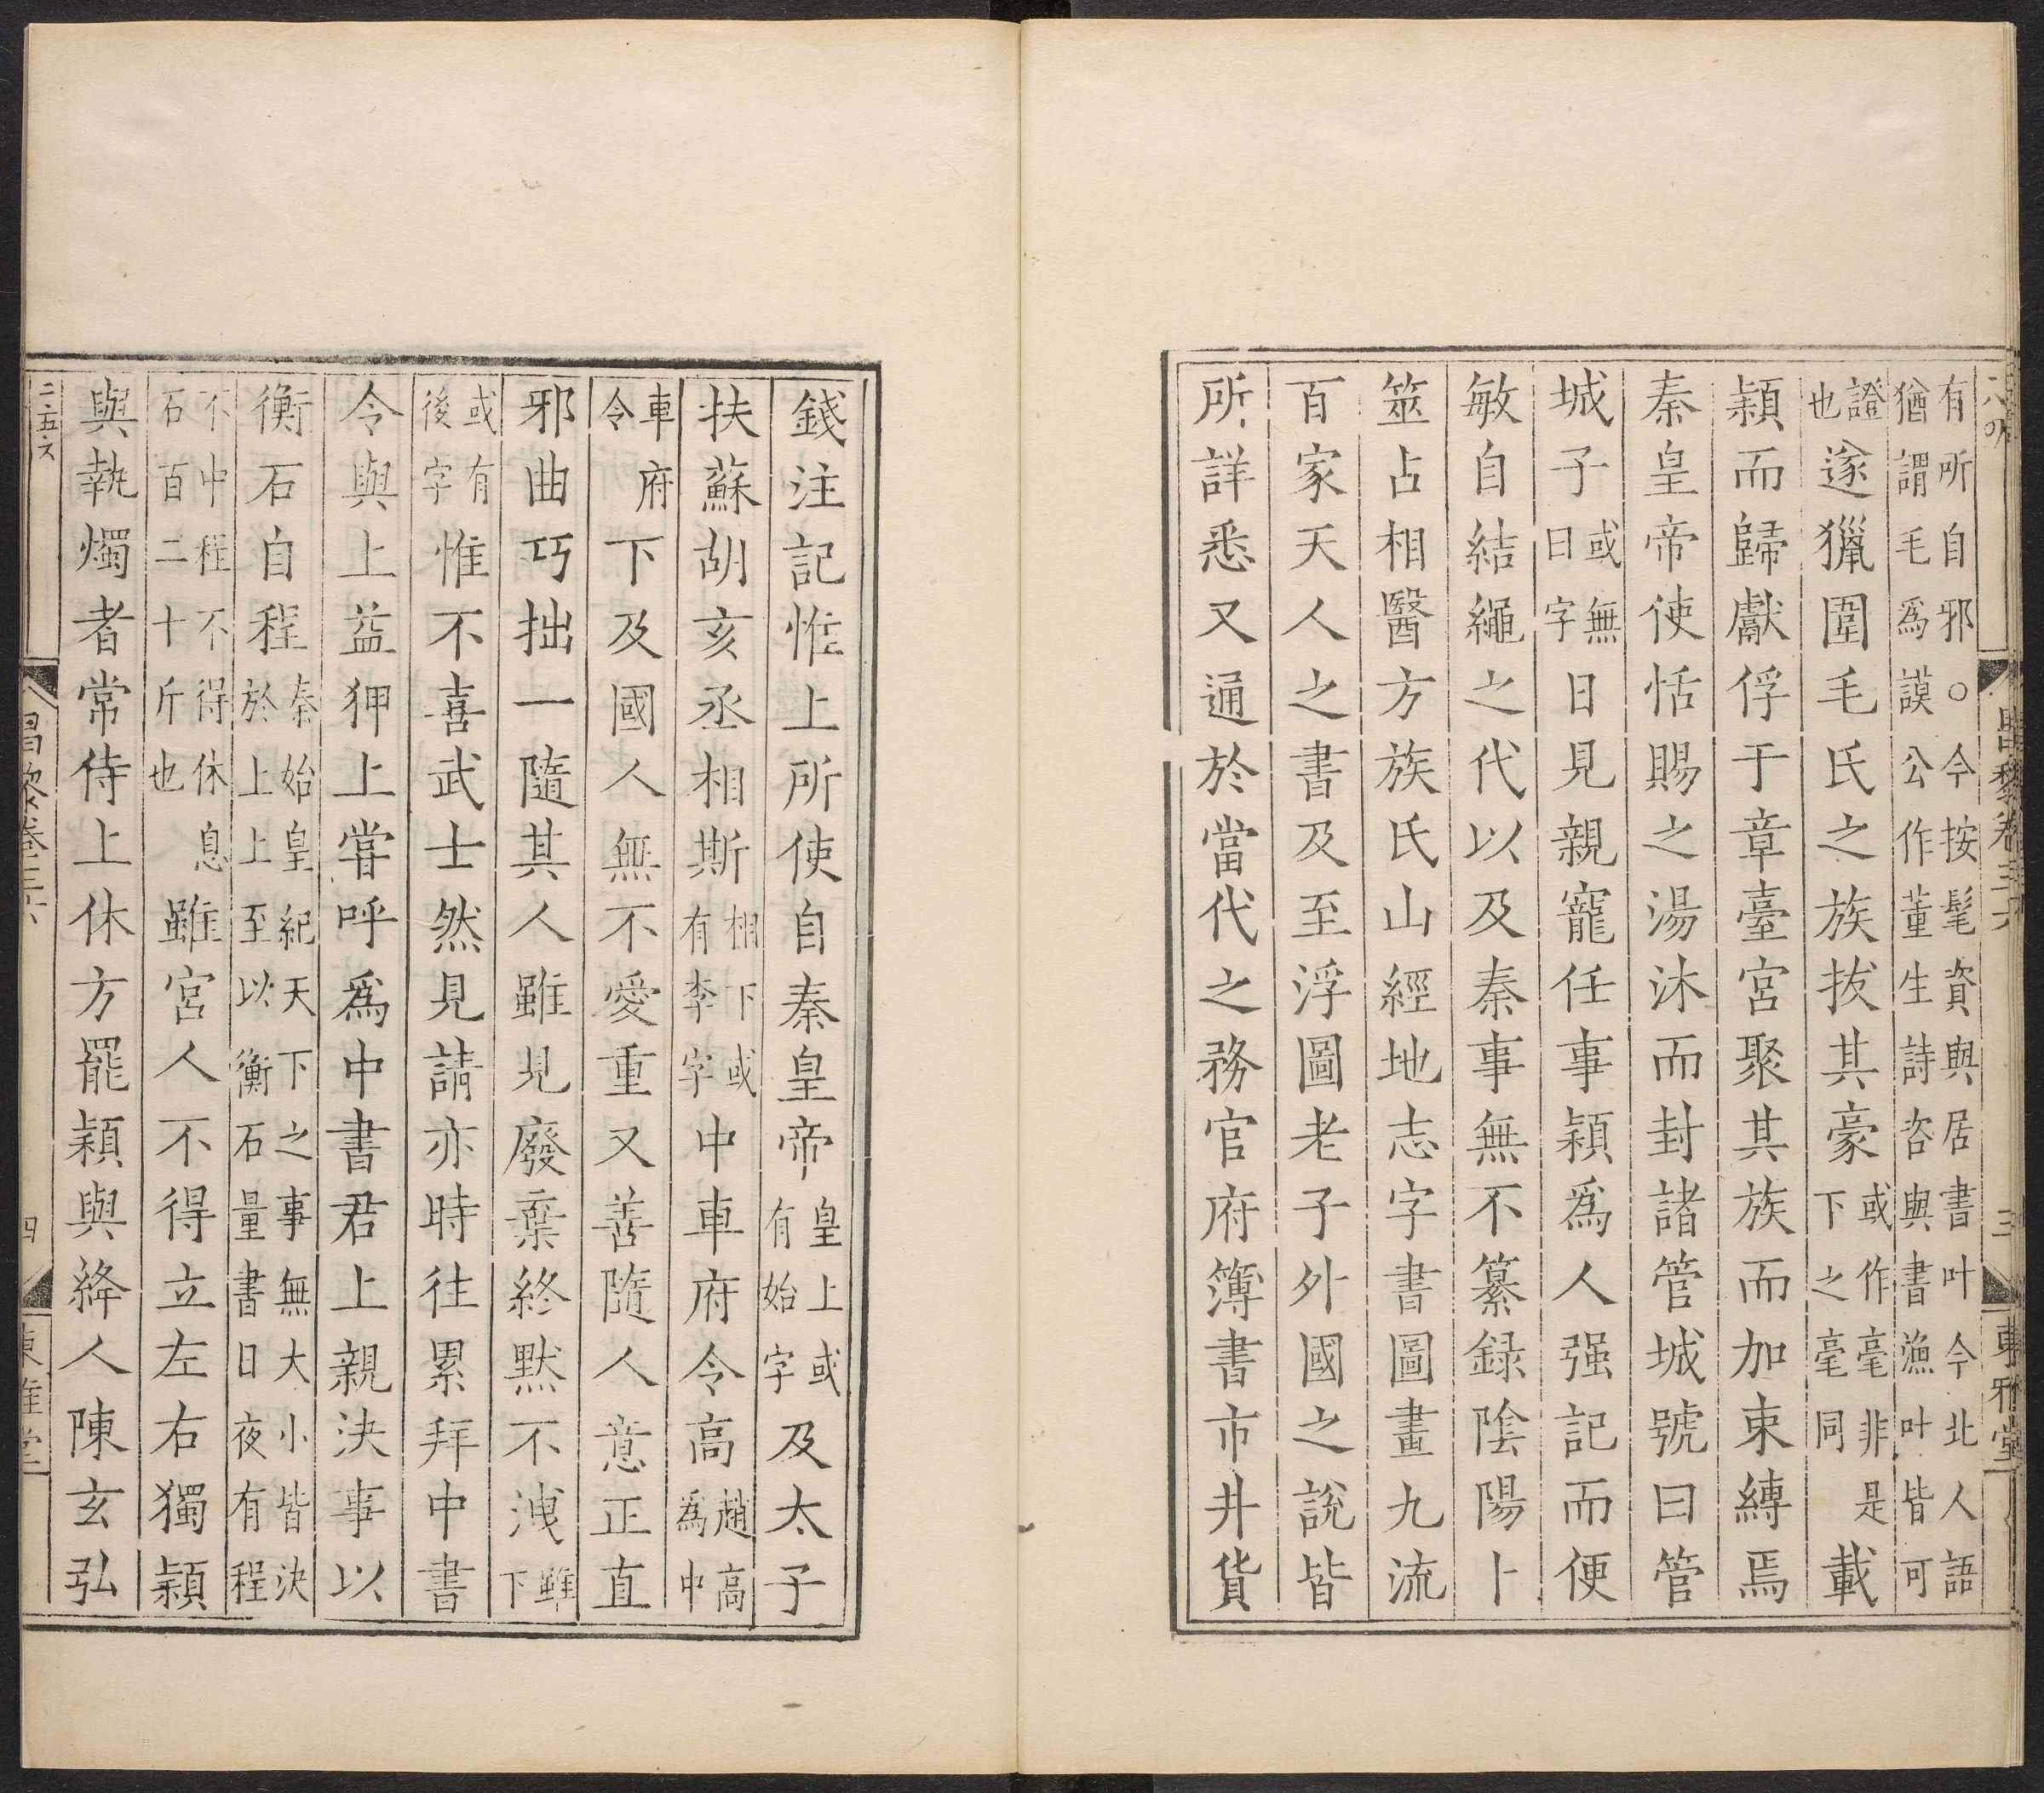 昌黎卷三六　三　東雅堂
有所自邪○今按髦資與居書叶今北人語猶謂毛爲謨公作董生詩咨與書漁叶皆可
證也遂獵圍毛氏之族拔其豪或作毫非是下之毫同載
穎而歸獻俘于章臺宮聚其族而加束縛焉
秦皇帝使恬賜之湯沐而封諸管城號曰管
城子或無曰字日見親寵任事穎爲人强記而便
敏自結繩之代以及秦事無不纂録陰陽卜
筮占相醫方族氏山經地志字書圖畫九流
百家天人之書及至浮圖老子外國之說皆
所詳悉又通於當代之務官府簿書市井貨
錢注記惟上所使自秦皇帝皇上或有始字及太子
扶蘇胡亥丞相斯相下或有李字中車府令高趙高爲中
車府令下及國人無不愛重又善隨人意正直
邪曲巧拙一隨其人雖見廢棄終默不洩雖下
或有後字惟不喜武士然見請亦時往累拜中書
令與上益狎上嘗呼爲中書君上親決事以
衡石自程秦始皇紀天下之事無大小皆決於上上至以衡石量書日夜有程
不中程不得休息石百二十斤也雖宮人不得立左右獨穎
與執燭者常侍上休方罷穎與絳人陳玄弘
二五六　昌黎卷三六　四　東雅堂